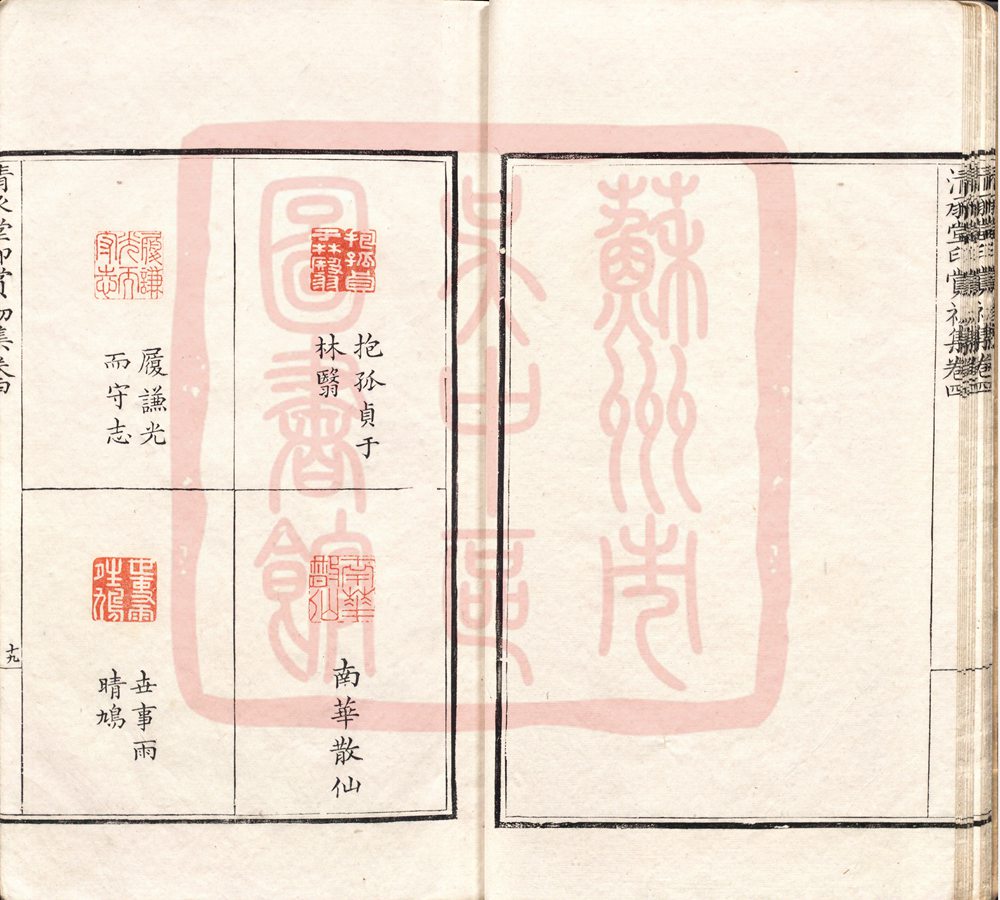 清承堂印賞初集卷四
蘇州市
吳中區
圖書館
抱孤貞
于林翳
抱孤貞于
林翳
南華
散仙
南華散仙
履謙
光而
守志
履謙光
而守志
世事雨
晴鳩
世事雨
晴鳩
清承堂印賞初集卷四
十九